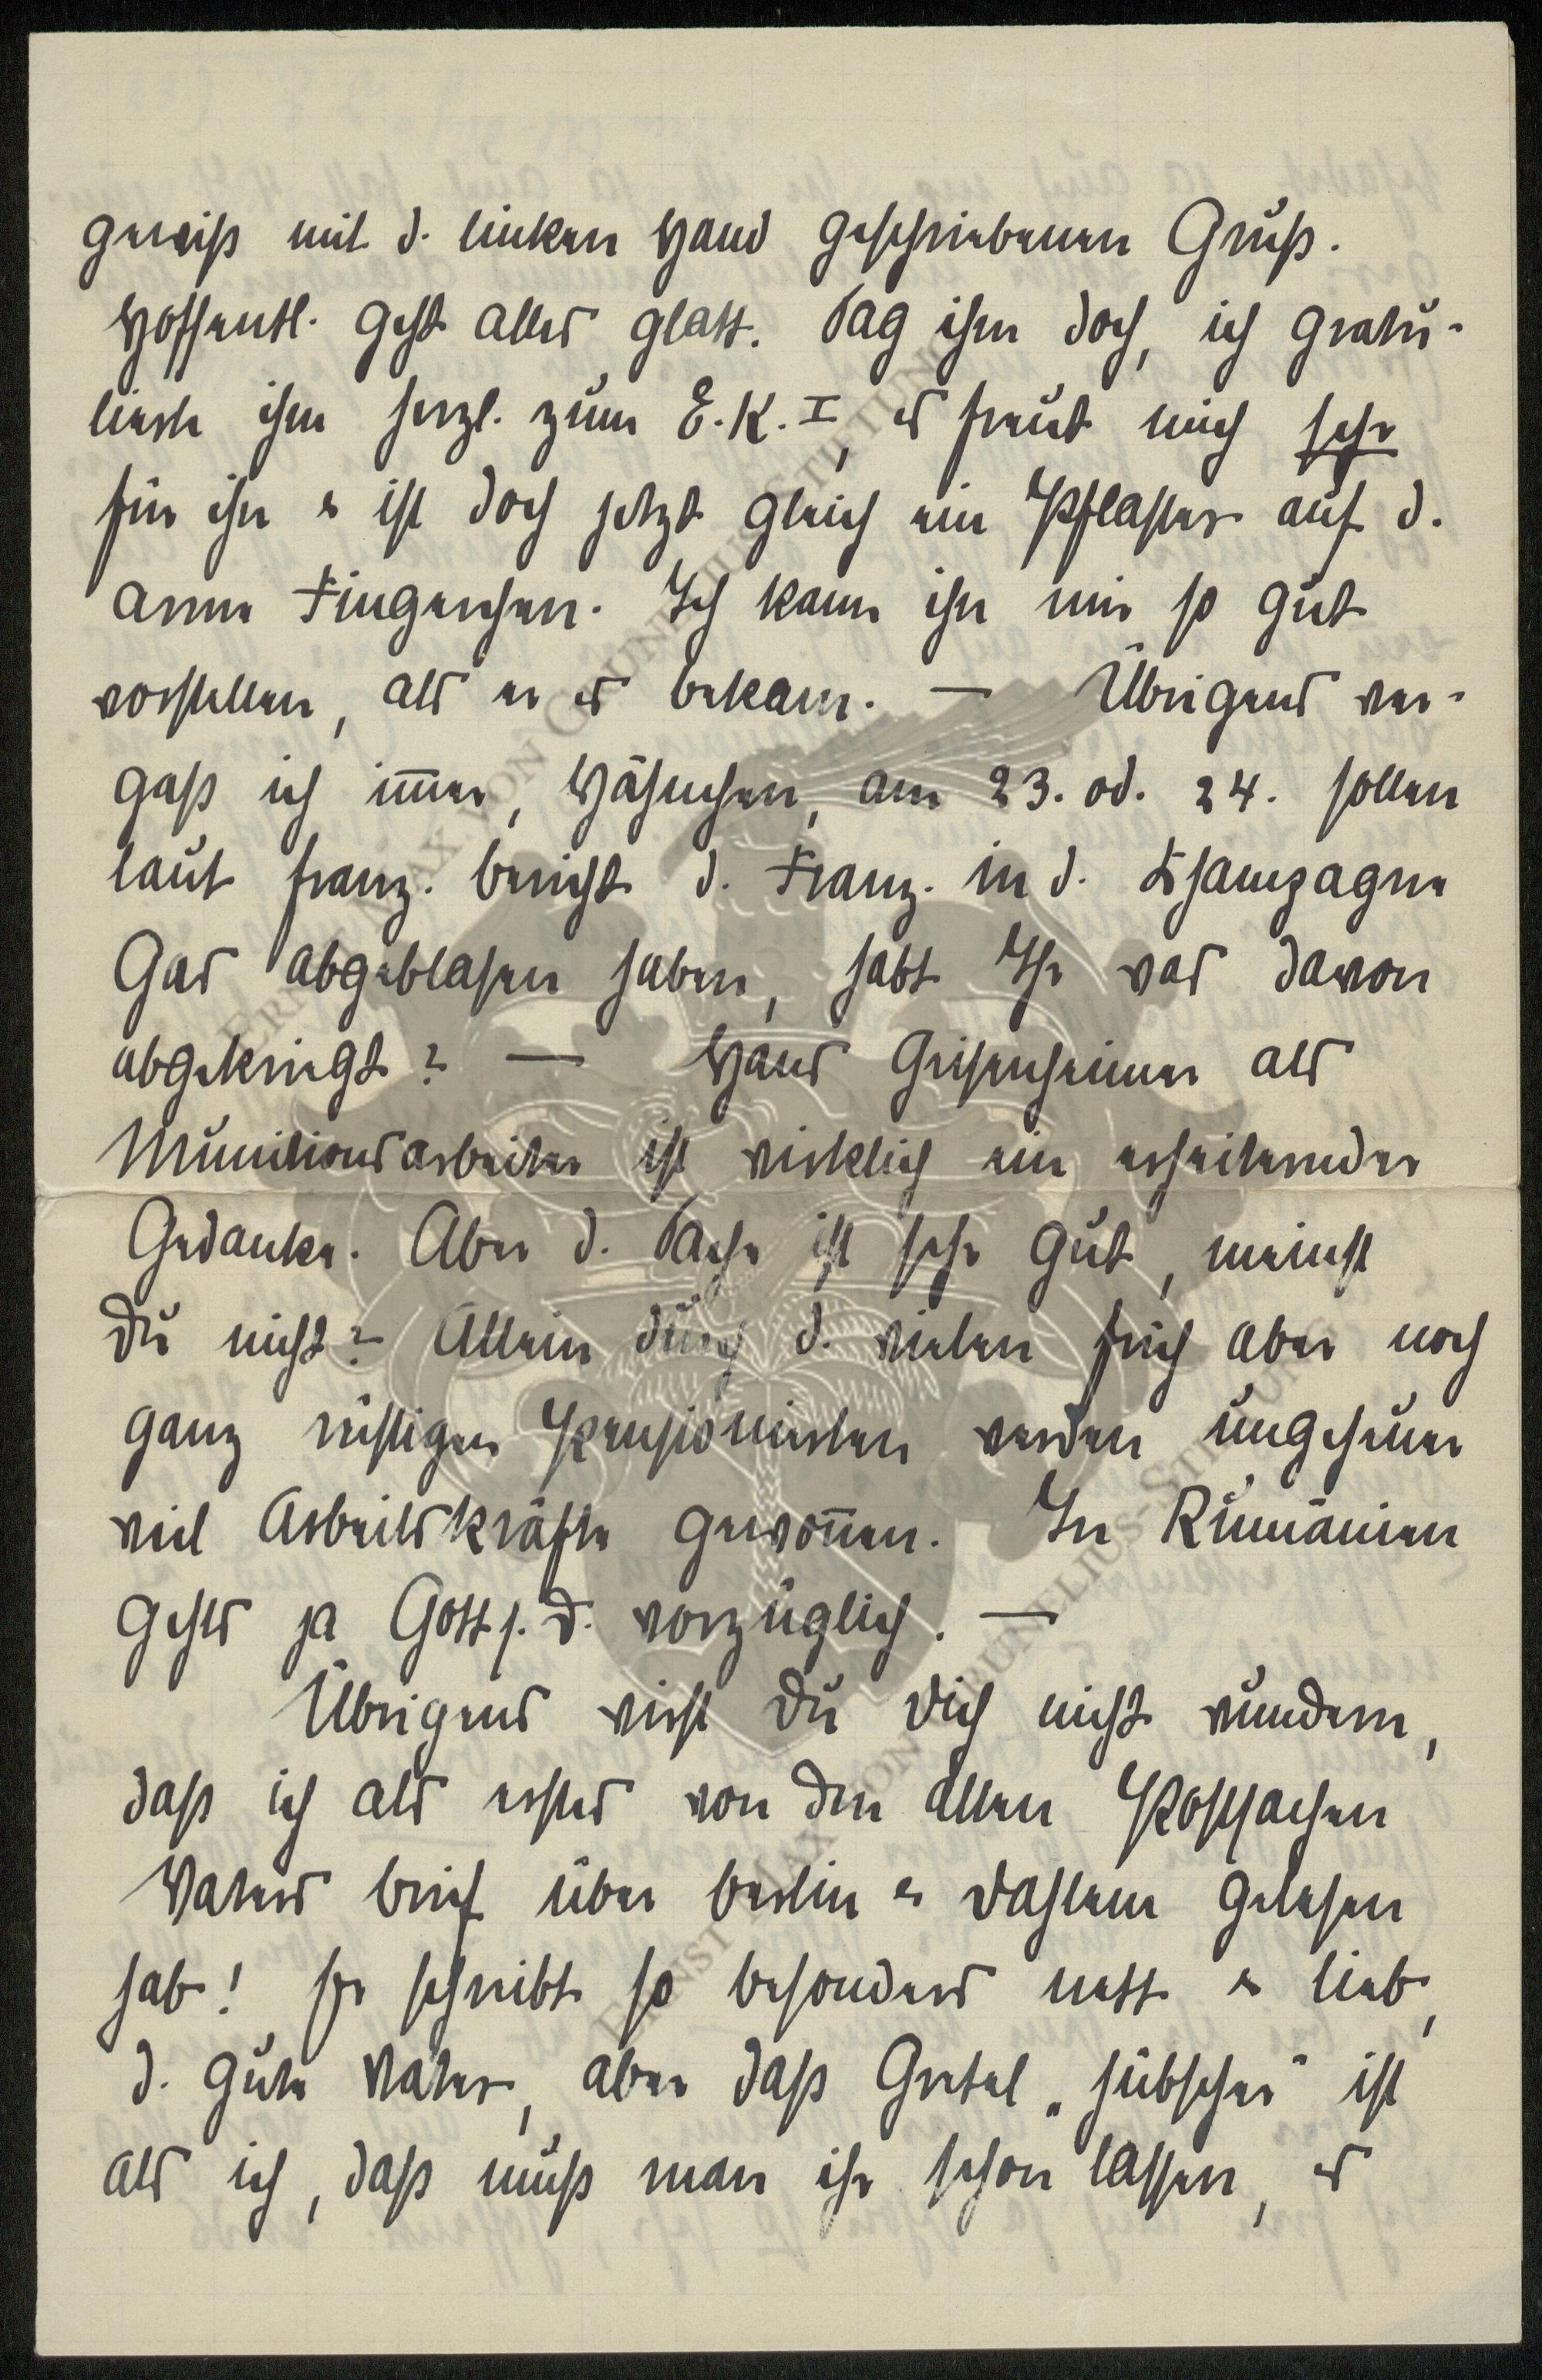 gewiß mit d. linken Hand geschriebenen Gruß.
Hoffentl. geht alles glatt. Sag ihm doch, ich gratu-
lierte ihm herzl. zum E.K.I, es freut mich sehr
für ihn & ist doch jetzt gleich ein Pflaster auf d.
arme Fingerchen. Ich kann ihn mir so gut
vorstellen, als er es bekam. — Übrigens ver-
gaß ich immer, Hähnchen, am 23. od. 24. sollen
laut franz. Bericht d. Franz. in d. Champagne
Gas abgeblasen haben, habt Ihr was davon
abgekriegt? — Hans Geisenheimer als
Munitionsarbeiter ist wirklich ein erheiternder
Gedanke. Aber d. Sache ist sehr gut, meinst
Du nicht? Allein durch d. vielen früh aber noch
ganz rüstigen Pensionierten werden ungeheuer
viel Arbeitskräfte gewonnen. In Rumänien
gehts ja Gott s. D. vorzüglich. —
Übrigens wirst Du Dich nicht wundern,
daß ich als erstes von den allen Postsachen
Vaters Brief über Berlin & Dahlem gelesen
hab! Er schreibt so besonders nett & lieb,
d. gute Vater, aber daß Gretel „hübscher" ist
als ich, daß muß man ihr schon lassen, es
ERNST MAX VON GRUNELIUS-STIFTUNG
ERNST MAX VON GRUNELIUS-STIFTUNG